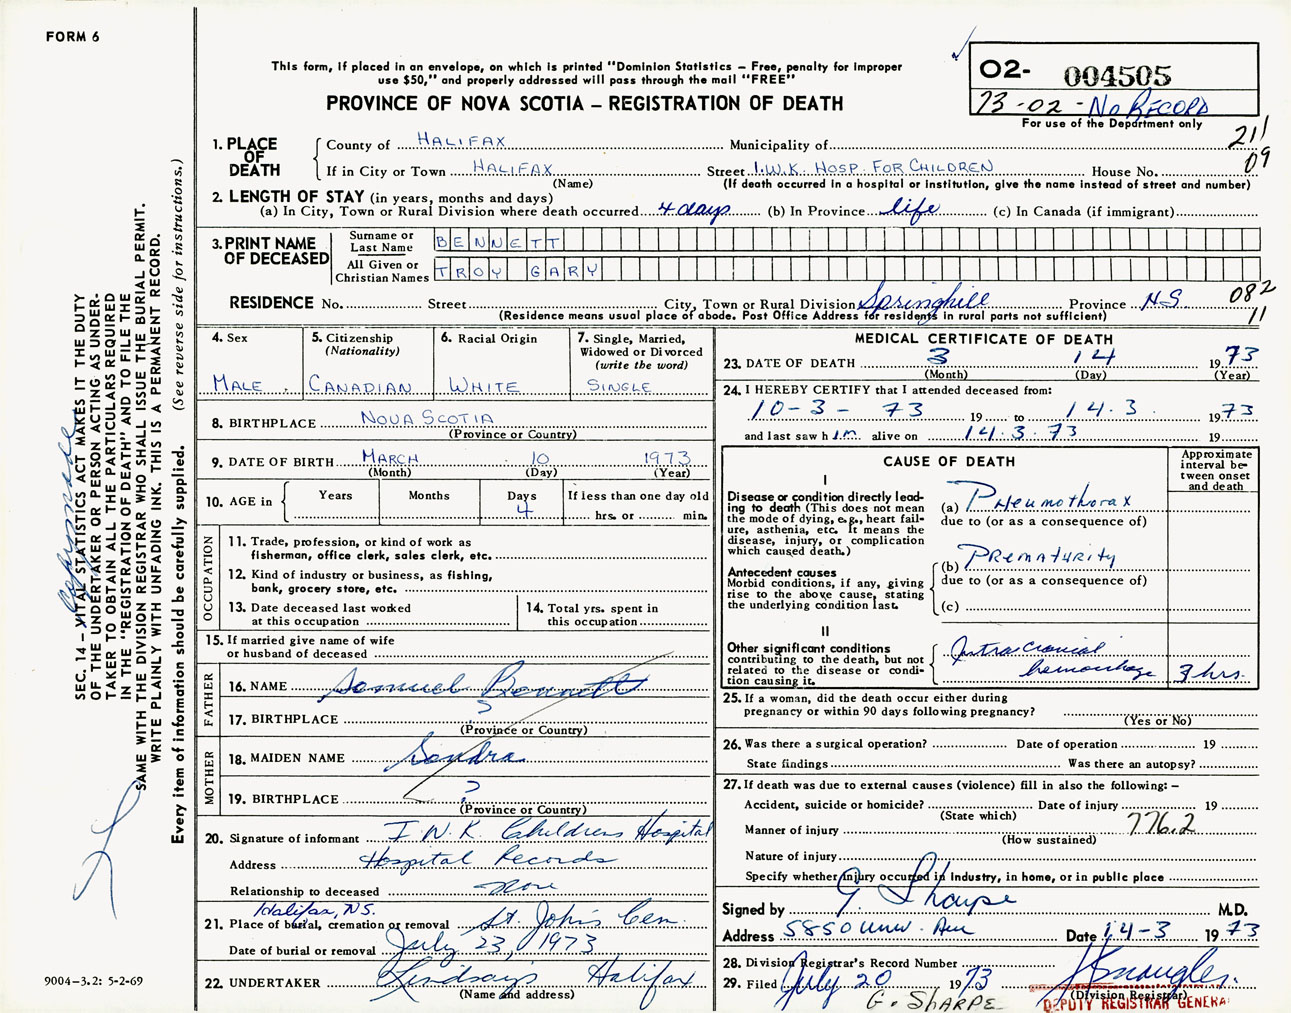 FORM 6
This form, if placed in an envelope, on which is printed "Dominion Statistics – Free, penalty for improper
use $50," and properly addressed will pass through the mail "FREE"
PROVINCE OF NOVA SCOTIA – REGISTRATION OF DEATH
02- 004505
73-02-NO RECORD
For use of the Department only
211
09
1. PLACE OF DEATH
County of HALIFAX Municipality of
If in City or Town HALIFAX Street I.W.K. HOSP. FOR CHILDREN House No.
(Name) (If death occurred in a hospital or institution, give the name instead of street and number)
2. LENGTH OF STAY (in years, months and days)
(a) In City, Town or Rural Division where death occurred 4 days (b) In Province life (c) In Canada (if immigrant)
3. PRINT NAME OF DECEASED
Surname or Last Name BENNETT
All Given or Christian Names TROY GARY
RESIDENCE No. Street City, Town or Rural Division Springhill Province NS
082
11
(Residence means usual place of abode. Post Office Address for residents in rural parts not sufficient)
4. Sex
MALE
5. Citizenship
(Nationality)
CANADIAN
6. Racial Origin
WHITE
7. Single, Married,
Widowed or Divorced
(write the word)
SINGLE
8. BIRTHPLACE NOVA SCOTIA
(Province or Country)
9. DATE OF BIRTH MARCH 10 1973
(Month) (Day) (Year)
10. AGE in Years Months Days If less than one day old
4 hrs. or min.
OCCUPATION
11. Trade, profession, or kind of work as
fisherman, office clerk, sales clerk, etc.
12. Kind of industry or business, as fishing,
bank, grocery store, etc.
13. Date deceased last worked
at this occupation
14. Total yrs. spent in
this occupation
15. If married give name of wife
or husband of deceased
FATHER
16. NAME Samuel Bennett
17. BIRTHPLACE ?
(Province or Country)
MOTHER
18. MAIDEN NAME Sandra
19. BIRTHPLACE ?
(Province or Country)
20. Signature of informant I.W.K. Childrens Hospital
Address Hospital Records
Relationship to deceased none
Halifax, N.S.
21. Place of burial, cremation or removal St. John's Cem.
Date of burial or removal July 23, 1973
22. UNDERTAKER Lindsay's Halifax
(Name and address)
MEDICAL CERTIFICATE OF DEATH
23. DATE OF DEATH 3 14 1973
(Month) (Day) (Year)
24. I HEREBY CERTIFY that I attended deceased from:
10-3-73 19 to 14.3. 1973
and last saw him alive on 14.3.73 19
CAUSE OF DEATH
Approximate
interval be-
tween onset
and death
I
Disease or condition directly lead-
ing to death (This does not mean
the mode of dying, e.g., heart fail-
ure, asthenia, etc. It means the
disease, injury, or complication
which caused death.)
(a) Pneumothorax
due to (or as a consequence of)
Antecedent causes
Morbid conditions, if any, giving
rise to the above cause, stating
the underlying condition last.
(b) Prematurity
due to (or as a consequence of)
(c)
II
Other significant conditions
contributing to the death, but not
related to the disease or condi-
tion causing it.
Intracranial
hemorrhage 3 hrs.
25. If a woman, did the death occur either during
pregnancy or within 90 days following pregnancy?
(Yes or No)
26. Was there a surgical operation? Date of operation 19
State findings Was there an autopsy?
27. If death was due to external causes (violence) fill in also the following: –
Accident, suicide or homicide? Date of injury 19
(State which)
Manner of injury 776.2
(How sustained)
Nature of injury
Specify whether injury occurred in industry, in home, or in public place
Signed by G. Sharpe M.D.
Address 5850 Univ. Ave Date 14-3 1973
28. Division Registrar's Record Number
29. Filed July 20 1973
(Division Registrar)
G. SHARPE
DEPUTY REGISTRAR GENERAL
SEC. 14 – VITAL STATISTICS ACT MAKES IT THE DUTY
OF THE UNDERTAKER OR PERSON ACTING AS UNDER-
TAKER TO OBTAIN ALL THE PARTICULARS REQUIRED
IN THE "REGISTRATION OF DEATH" AND TO FILE THE
SAME WITH THE DIVISION REGISTRAR WHO SHALL ISSUE THE BURIAL PERMIT.
WRITE PLAINLY WITH UNFADING INK. THIS IS A PERMANENT RECORD.
Every item of information should be carefully supplied. (See reverse side for instructions.)
9004-3.2: 5-2-69